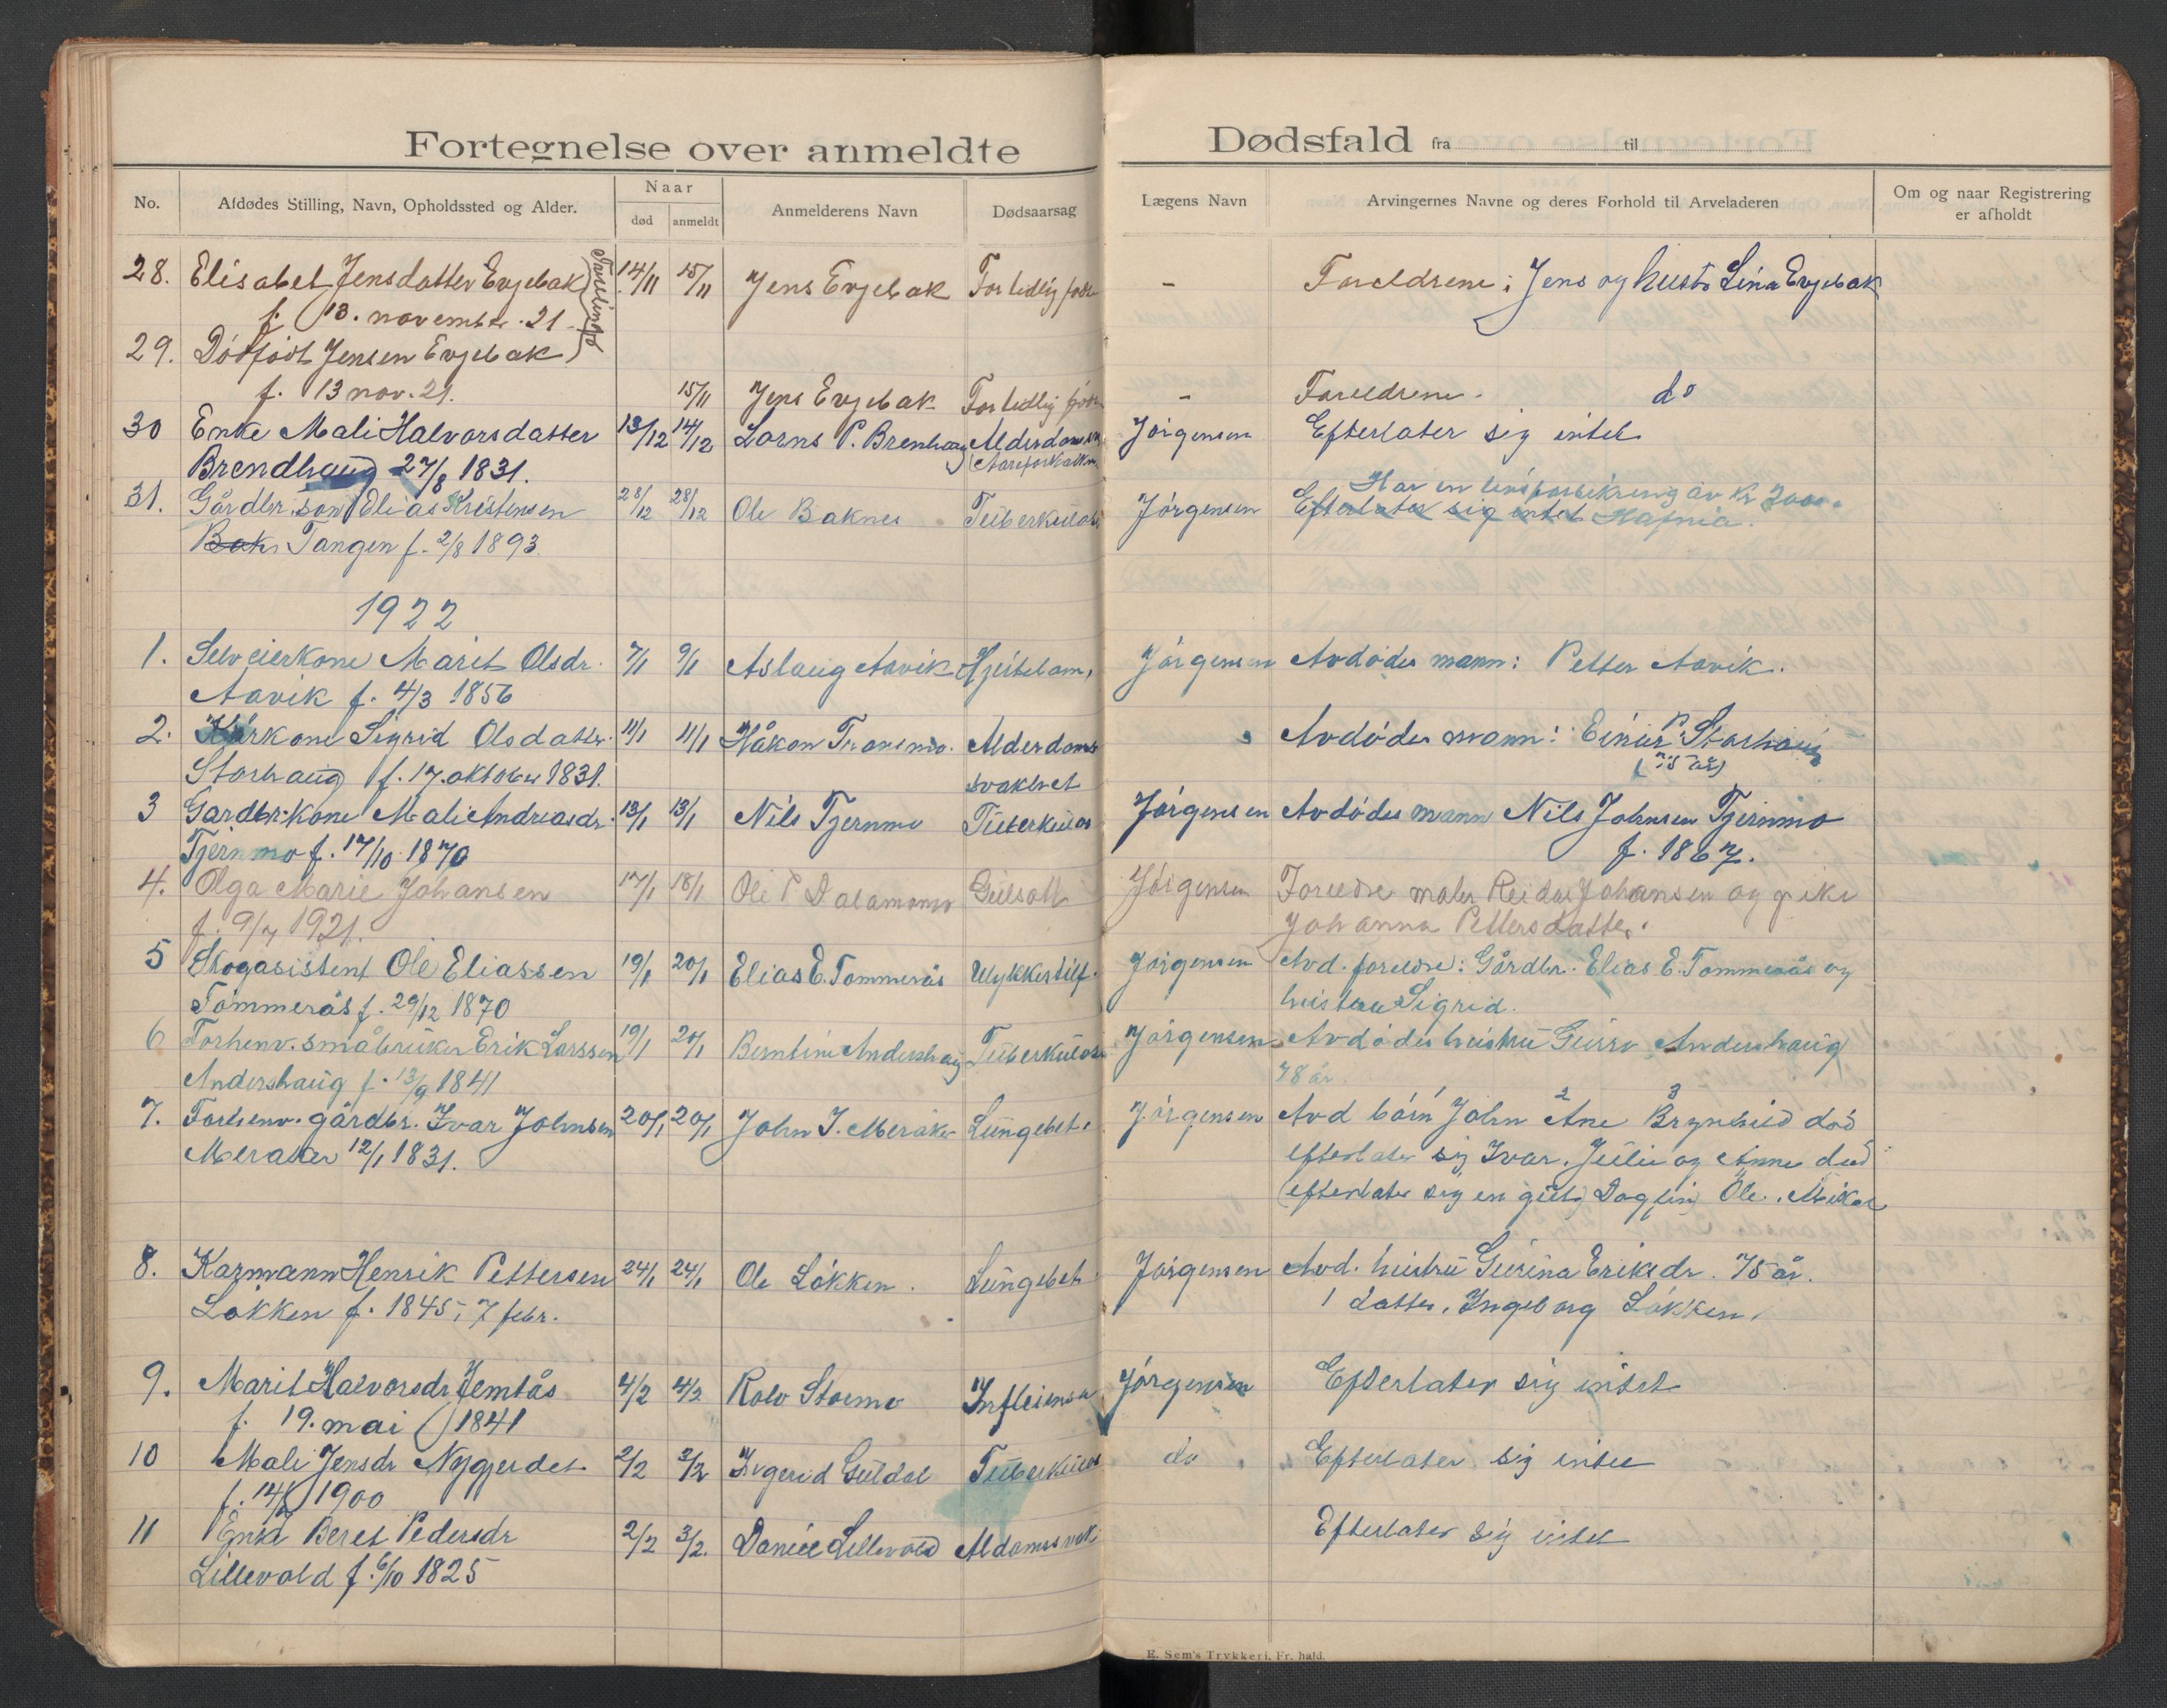 Fortegnelse over anmeldte Dødsfald fra til
No. Afdødes Stilling, Navn, Opholdssted og Alder. Naar Anmelderens Navn Dødsaarsag Lægens Navn Arvingernes Navne og deres Forhold til Arveladeren Om og naar Registrering
død anmeldt er afholdt
28. Elisabet Jensdatter Evjebak 14/11 15/11 Jens Evjebak For tidlig født - Foreldrene: Jens og hustr Lina Evjebak
f. 13. november. 21
Tvillinger
29. Dødfødt Jensen Evjebak
f. 13 nov. 21. 15/11 Jens Evjebak For tidlig født - Foreldrene. do
30 Enke Mali Halvorsdatter 13/12 14/12 Lorns P. Brenhaug Alderdomssv Jørgensen Efterlater sig intet
Brendhaug 27/8 1831. (Aareforkalkn.
31. Gårdbr.søn Elias Kristensen 28/12 28/12 Ole Baknes Tuberkulose Jørgensen Efterlater sig intet Hafnia.
Har en livsforsikring av Kr 2000.
Bakn Tangen f. 2/8 1893.
1922
1. Selveierkone Marit Olsdr. 7/1 9/1 Aslaug Aavik Hjertelam. Jørgensen Avdødes mann: Petter Aavik.
Aavik f. 4/3 1856
2. Kårkone Sigrid Olsdatter. 11/1 11/1 Håkon Tronsmo. Alderdoms Avdødes mann: Einar P. Storhaug
Storhaug f. 17. oktober 1831. svakhet
3 Gardbr.kone Mali Andreasdr. 13/1 13/1 Nils Tjernmo Tuberkulos Jørgensen Avdødes mann Nils Johnsen Tjernmo
Tjernmo f. 17/10 1870 f. 1867.
4. Olga Marie Johansen 17/1 18/1 Ole P Dalamono Gulsott Jørgensen Foreldre maler Reidar Johansen og pike
f. 9/7 1921. Johanna Pettersdatter.
5 Skogasistent Ole Eliassen 19/1 20/1 Elias E. Tømmerås Ulykkestilf. Jørgensen Avd. foreldre: Gårdbr. Elias E. Tømmerås og
Tømmerås f. 29/12 1870 hustru Sigrid.
6 Forhenv. småbruker Erik Larssen 19/1 20/1 Berntine Andershaug Tuberkulose Jørgensen Avdødes hustru Guro Andershaug
Andershaug f. 13/9 1841 78 år.
7. Forhenv. gårdbr. Ivar Johnsen 20/1 20/1 John J. Meråker Lungebet. Jørgensen Avd børn John 2 Ane 3 Brynhild død
Meraker 12/1 1831. efterlater sig Ivar, Julie og Anne død
(efterlater sig en gut) Dagfin, Ole, Mikal
8. Karmann Henrik Pettersen 24/1 24/1 Ole Løkken. Lungebet. Jørgensen Avd. hustru Gurina Eriksdr. 75 år.
Løkken f. 1845, 7 febr. 1 datter, Ingeborg Løkken.
9. Marit Halvorsdr Jemtås 4/2 4/2 Rolv Stormo Influensa Jørgensen Efterlater sig intet
f. 19. mai 1841
10 Mali Jensdr Nygjerdet 2/2 3/2 Ingerid Guldal Tuberkulos do Efterlater sig intet
1900
11 Enke Beret Pedersdr 2/2 3/2. Daniel Lillevold Aldomssvak. Efterlater sig intet
Lillevold f. 6/10 1825
E. Sem's Trykkeri, Fr. hald.